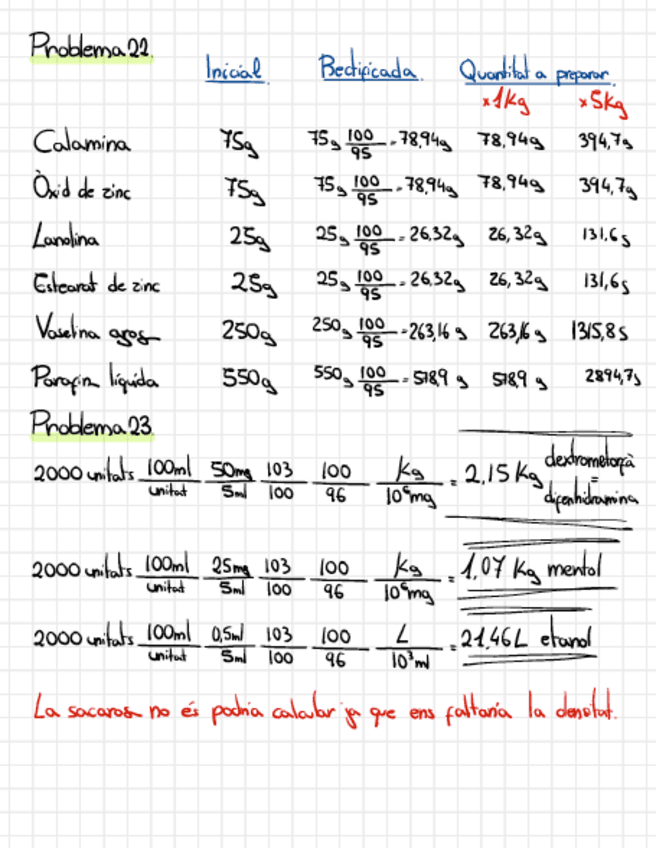 Problema 22.
Inicial Rectificada. Quantitat a preparar
x1Kg x5Kg
Calamina 75g 75g 100/95 = 78,94g 78,94g 394,7g
Òxid de zinc 75g 75g 100/95 = 78,94g 78,94g 394,7g
Lanolina 25g 25g 100/95 = 26,32g 26,32g 131,6g
Estearat de zinc 25g 25g 100/95 = 26,32g 26,32g 131,6g
Vaselina 250g 250g 100/95 = 263,16 g 263,16 g 1315,8g
Parafin líquida 550g 550g 100/95 = 578,9 g 578,9 g 2894,7g
Problema 23
2000 unitats 100ml/unitat 50mg/5ml 103/100 100/96 Kg/10⁶mg = 2,15 Kg dextrometorfà = difenhidramina
2000 unitats 100ml/unitat 25mg/5ml 103/100 100/96 Kg/10⁶mg = 1,07 Kg mentol
2000 unitats 100ml/unitat 0,5ml/5ml 103/100 100/96 L/10³ml = 21,46L etanol
La sacarosa no és podria calcular ja que ens faltaria la densitat.